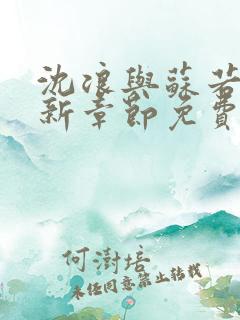 沈浪與蘇若
新章節免費
何澍培
未经同意禁止转载